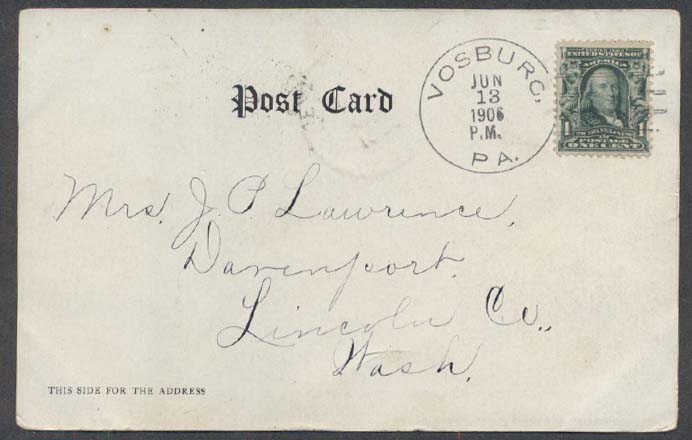 Post Card
VOSBURG,
JUN
13
1906
P.M.
PA.
UNITED STATES OF
AMERICA
1 1
POSTAGE
ONE CENT
Mrs. J. P. Lawrence,
Davenport,
Lincoln Co.,
Wash.
THIS SIDE FOR THE ADDRESS